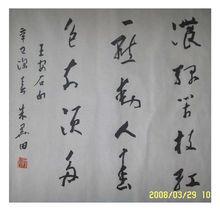 濃綠萬枝紅
一點動人春
色不須多
王安石句
2008/03/29